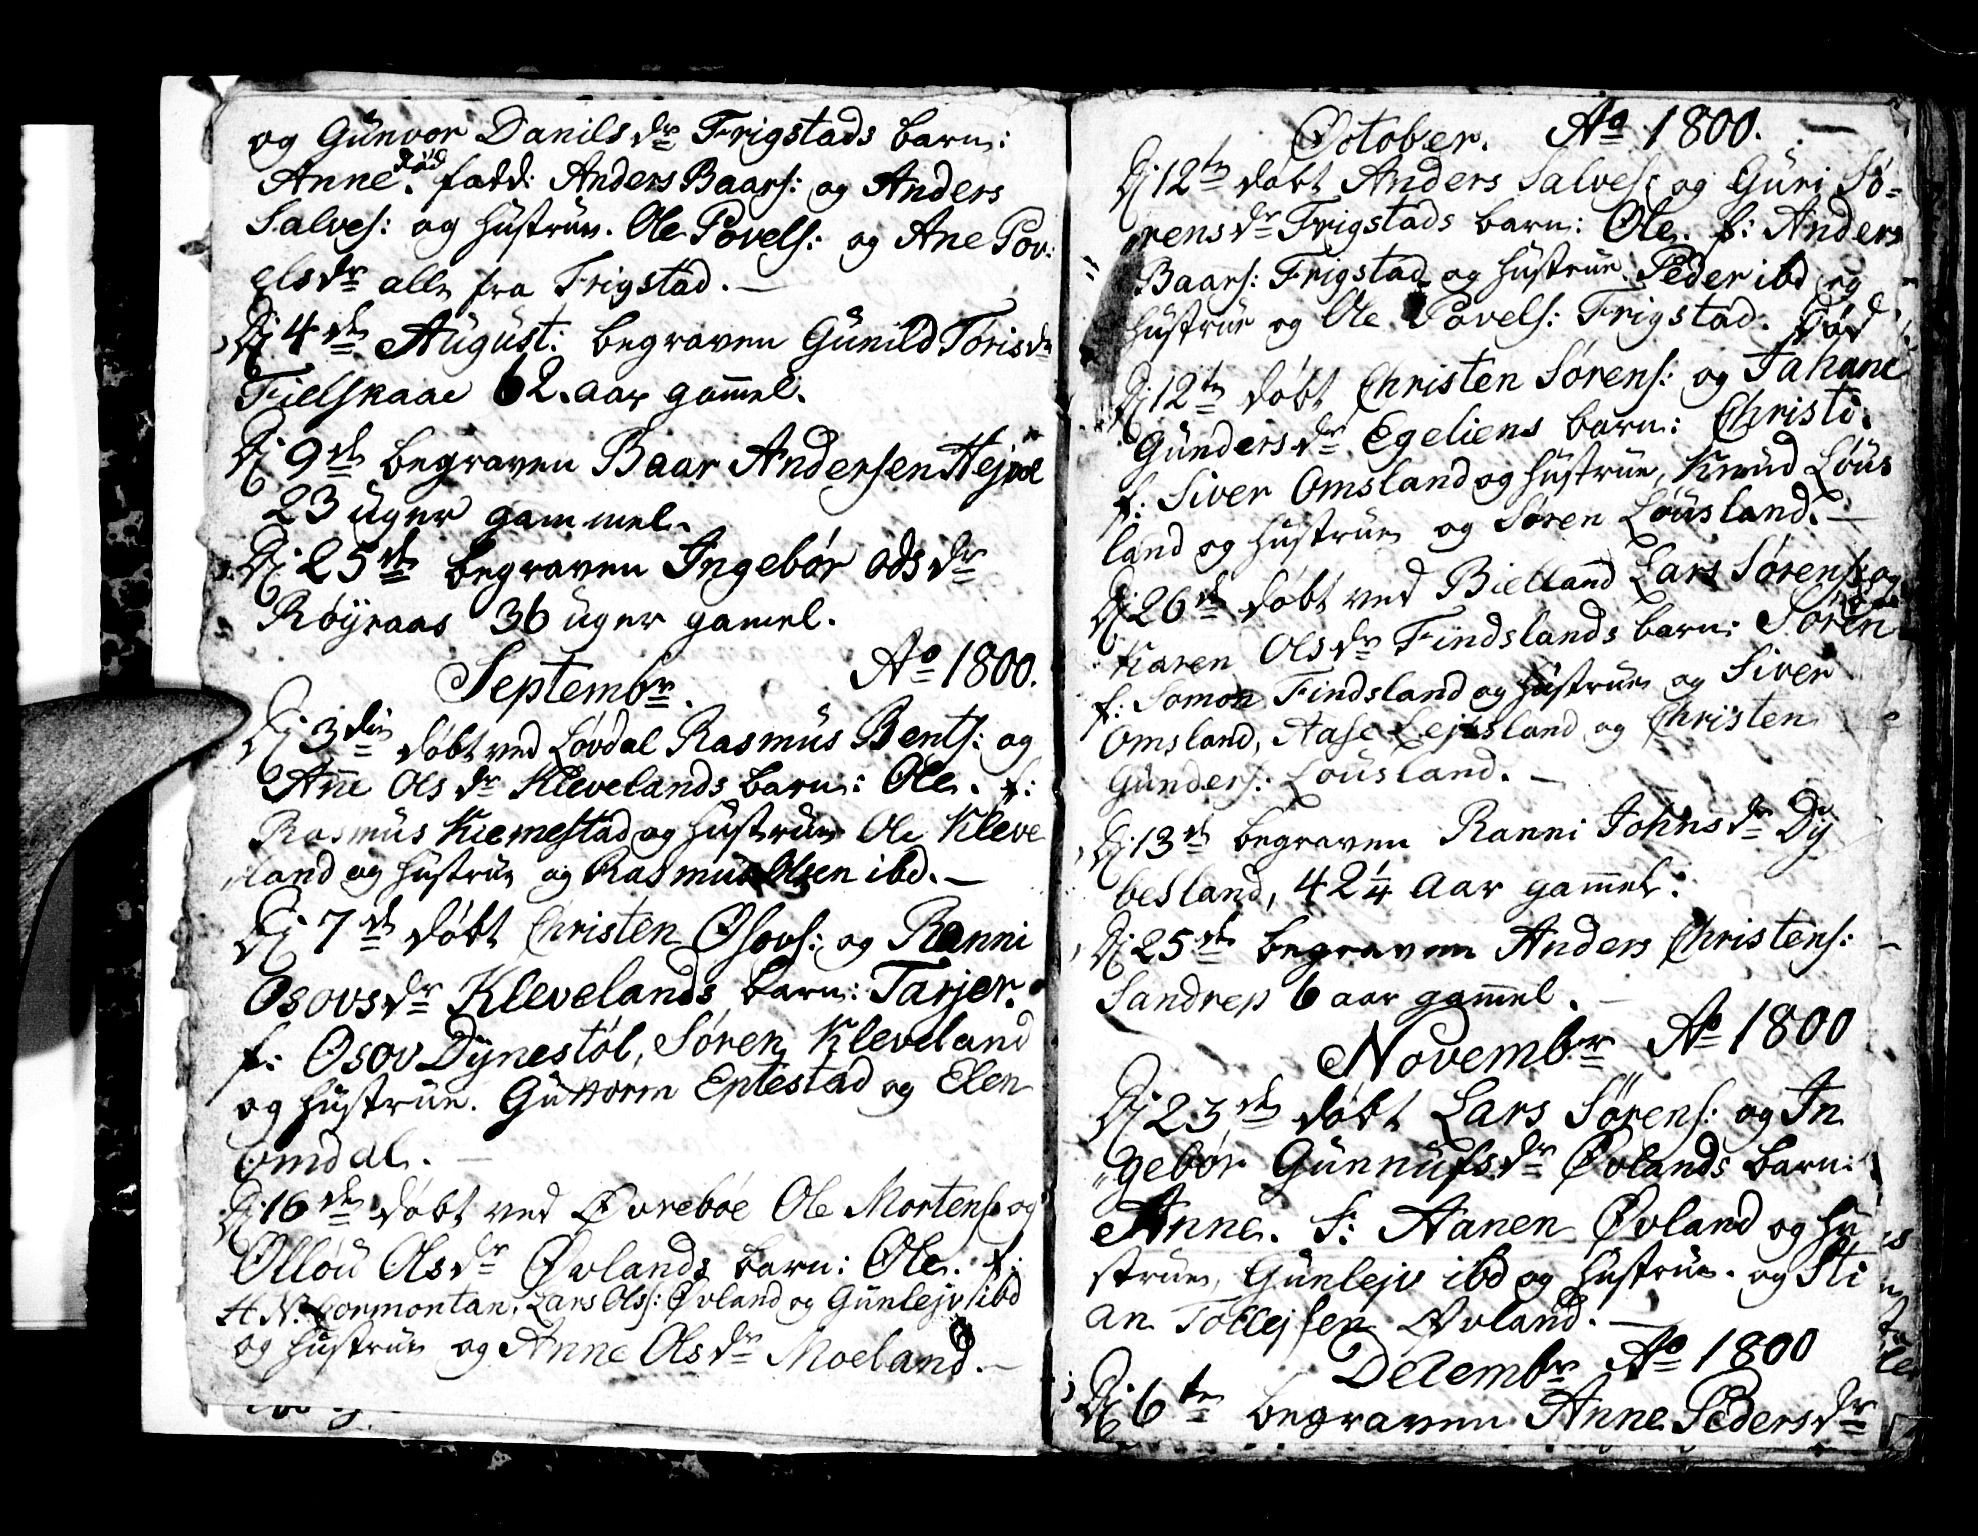 og Gunvor Danilsdr Frigstads barn:
Anne. død fadd: Anders Baars: og Anders
Salves: og Hustrue. Ole Povels: og Ane Pov:
elsdr alle fra Frigstad. —
Dj 4de August: begraven Gunild Torisdr
Fielskaae 62. aar gam̄el.
Dj 9de begraven Baar Andersen
23 uger gammel.
Dj 25de begraven Ingebór Odsdr
Róÿraas 36 uger gamel.
Septembr. Ao 1800.
Dj 3die dóbt ved Lóvdal Rasmus Bents: og
An̄e Olsdr Klevelands barn: Ole. f:
Rasmus Kiemestad og Hustrue Ole Kleve
land og Hustrue og Rasmus Olsen ibd. —
Dj 7de dóbt Christen Osovs: og Ranni
Osovsdr Klevelands barn: Tarjer.
f: Osov Dÿnestól, Sóren Kleveland
og Hustrue. Guttorm Eptestad og Elen
Omdal. —
Dj 16de dóbt ved Øvrebóe Ole Mortens: og
Ollóu Olsdr Øvlands barn: Ole. f:
H. N. Cormontan, Lars Ols: Øvland og Gunlejv ibd
og Hustrue og Anne Olsdr Moeland. —
October. Ao 1800. —
Dj 12te dóbt Anders Salves: og Guri Só=
rensdr Frigstads barn: Ole. f: Anders
Baars: Frigstad og Hustrue. Peder ibd og
Hustrue og Ole Povels: Frigstad. Død
Dj 12te dóbt Christen Sórens: og Jahane
Gundersdr Egeliens barn: Christi.
f: Siver Omsland og Hustrue, Knud Lóus
land og Hustrue og Sóren Lóusland. —
Dj 26de dóbt ved Bielland Lars Sórens: og
Karen Olsdr Findslands barn: Sóren
f: Somon Findsland og Hustrue og Siver
Omsland, Aase Lejvsland og Christen
Gunders: Lóusland. —
Dj 13de begraven Ranni Johnsdr Dÿ
besland, 42 1/4 Aar gam̄el.
Dj 25de begraven Anders Christens:
Sandrep 6 aar gam̄el. —
Novembr Ao 1800
Dj 23de dóbt Lars Sórens: og In
gebór Gunnufsdr Øvlands barn:
Anne. f: Aanen Øvland og Hu
strue, Gunlejv ibd og Hustrue. og Sti
an Tollejsen Øvland. —
Decembr Ao 1800
Dj 6te begraven Anne Pedersdr